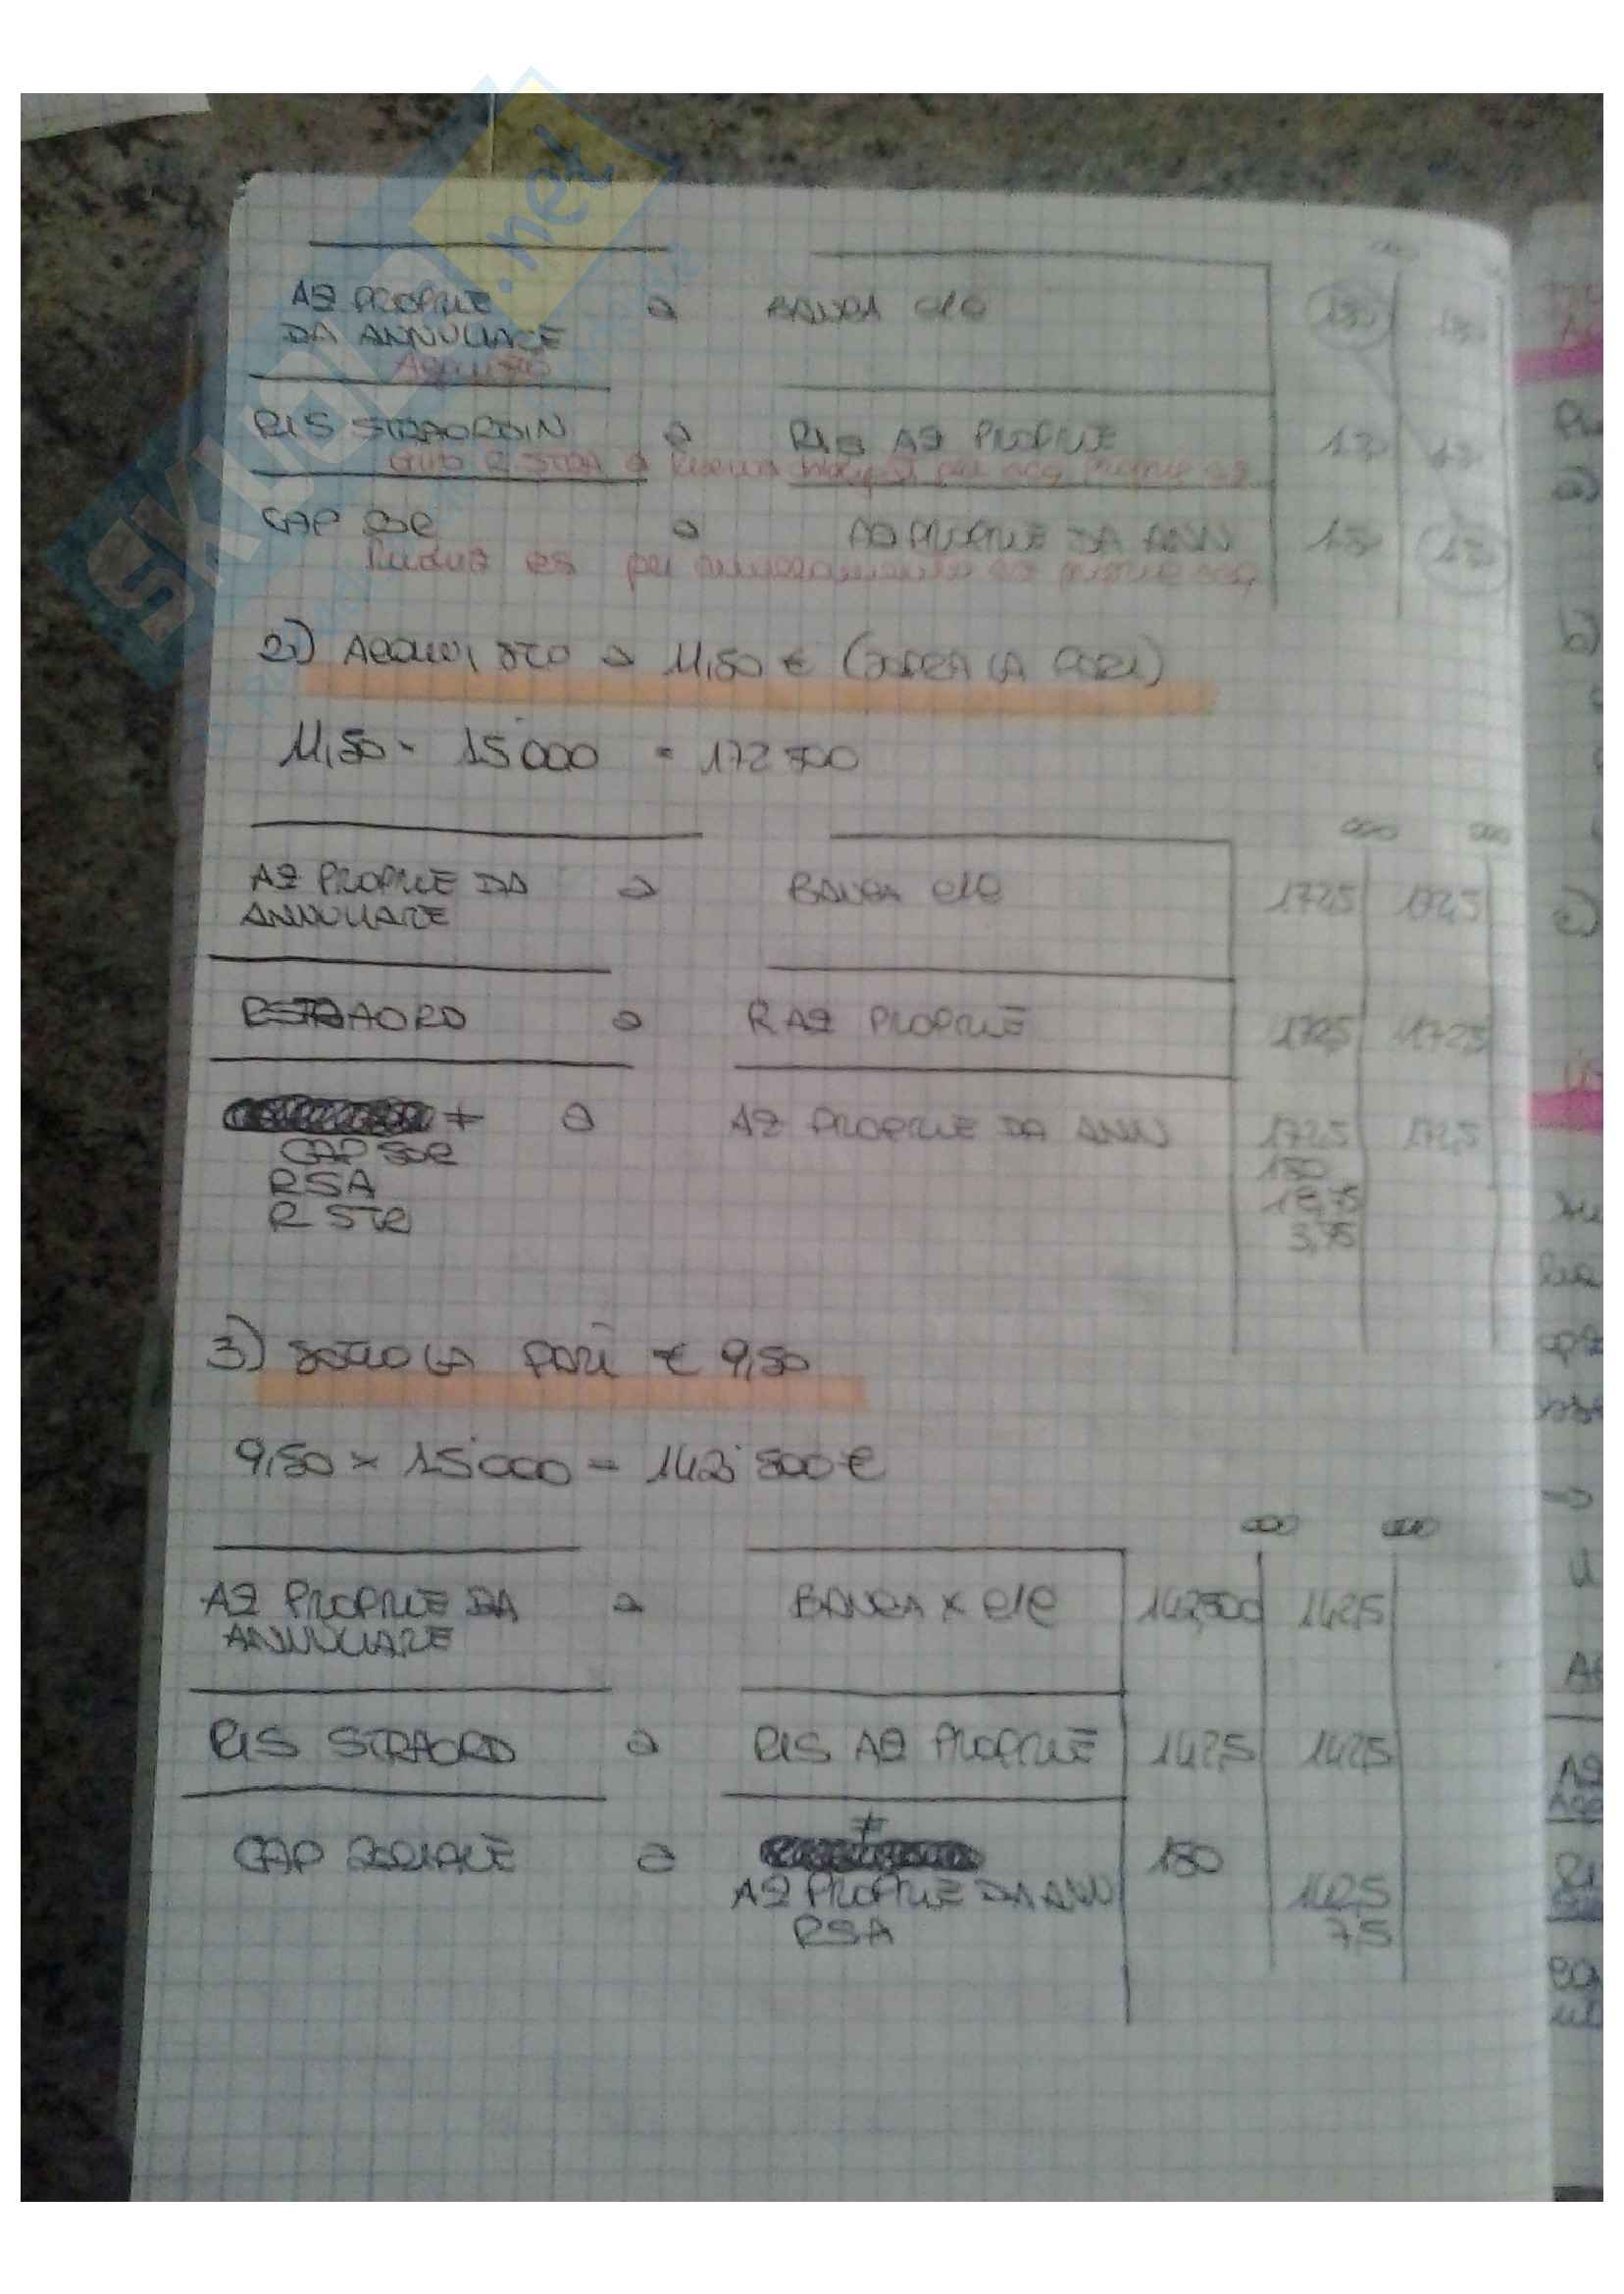 000
AZ PROPRIE a BANCA C/C 150 150
DA ANNULLARE
Acquisto
RIS STRAORDIN a RIS AZ PROPRIE 150 150
CAP SOC a AZ PROPRIE DA ANN 150 150
Riduz CS per az proprie
2) ACQUISTO a 11,50 € (SOPRA LA PARI)
11,50 · 15'000 = 172'500
000 000
AZ PROPRIE DA a BANCA C/C 172,5 172,5
ANNULLARE
R STRAORD a R AZ PROPRIE 172,5 172,5
+ a AZ PROPRIE DA ANN 172,5 172,5
CAP SOC 150
RSA 18,75
R STR 3,75
3) SOTTO LA PARI € 9,50
9,50 × 15'000 = 142'500 €
000 000
AZ PROPRIE DA a BANCA X C/C 142,500 142,5
ANNULLARE
RIS STRAORD a RIS AZ PROPRIE 142,5 142,5
CAP SOCIALE a + 150
AZ PROPRIE DA ANN 142,5
RSA 7,5
SKUOLA.net